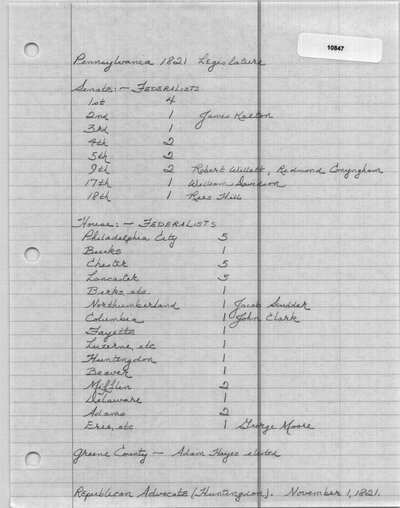 10847
Pennsylvania 1821 Legislature
Senate: - FEDERALISTS
1st 4
2nd 1 James Kelton
3rd 1
4th 2
5th 2
9th 2 Robert Willett, Redmond Conyngham
17th 1 William Davidson
18th 1 Rees Hill
House: - FEDERALISTS
Philadelphia City 5
Bucks 1
Chester 5
Lancaster 5
Berks, etc. 1
Northumberland 1 Jacob Scudder
Columbia 1 John Clark
Fayette 1
Luzerne, etc 1
Huntingdon 1
Beaver 1
Mifflin 2
Delaware 1
Adams 2
Erie, etc 1 George Moore
Greene County - Adam Hayes elected
Republican Advocate (Huntingdon). November 1, 1821.